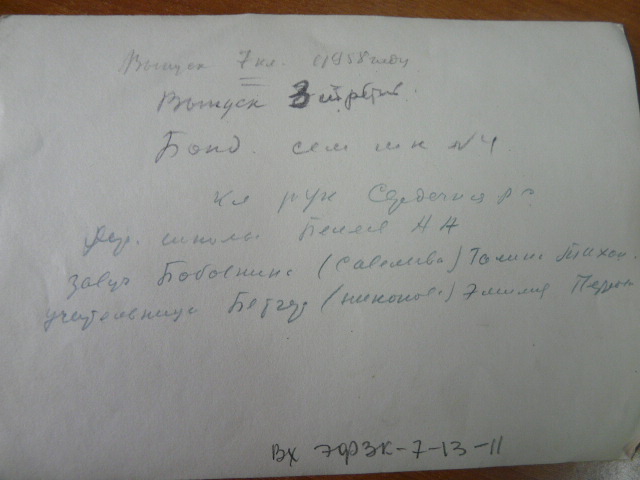 Выпуск 7 кл. 1958 году
Выпуск 3 третий.
Бонд. сем шк №4
кл рук Сердечная
Дир. школы Беляев А А
завуч Бобовкина (Савельева) Галина Тихон.
учительница (никонова) Эмилия Петров
Вх ЭФЗК-7-13-11